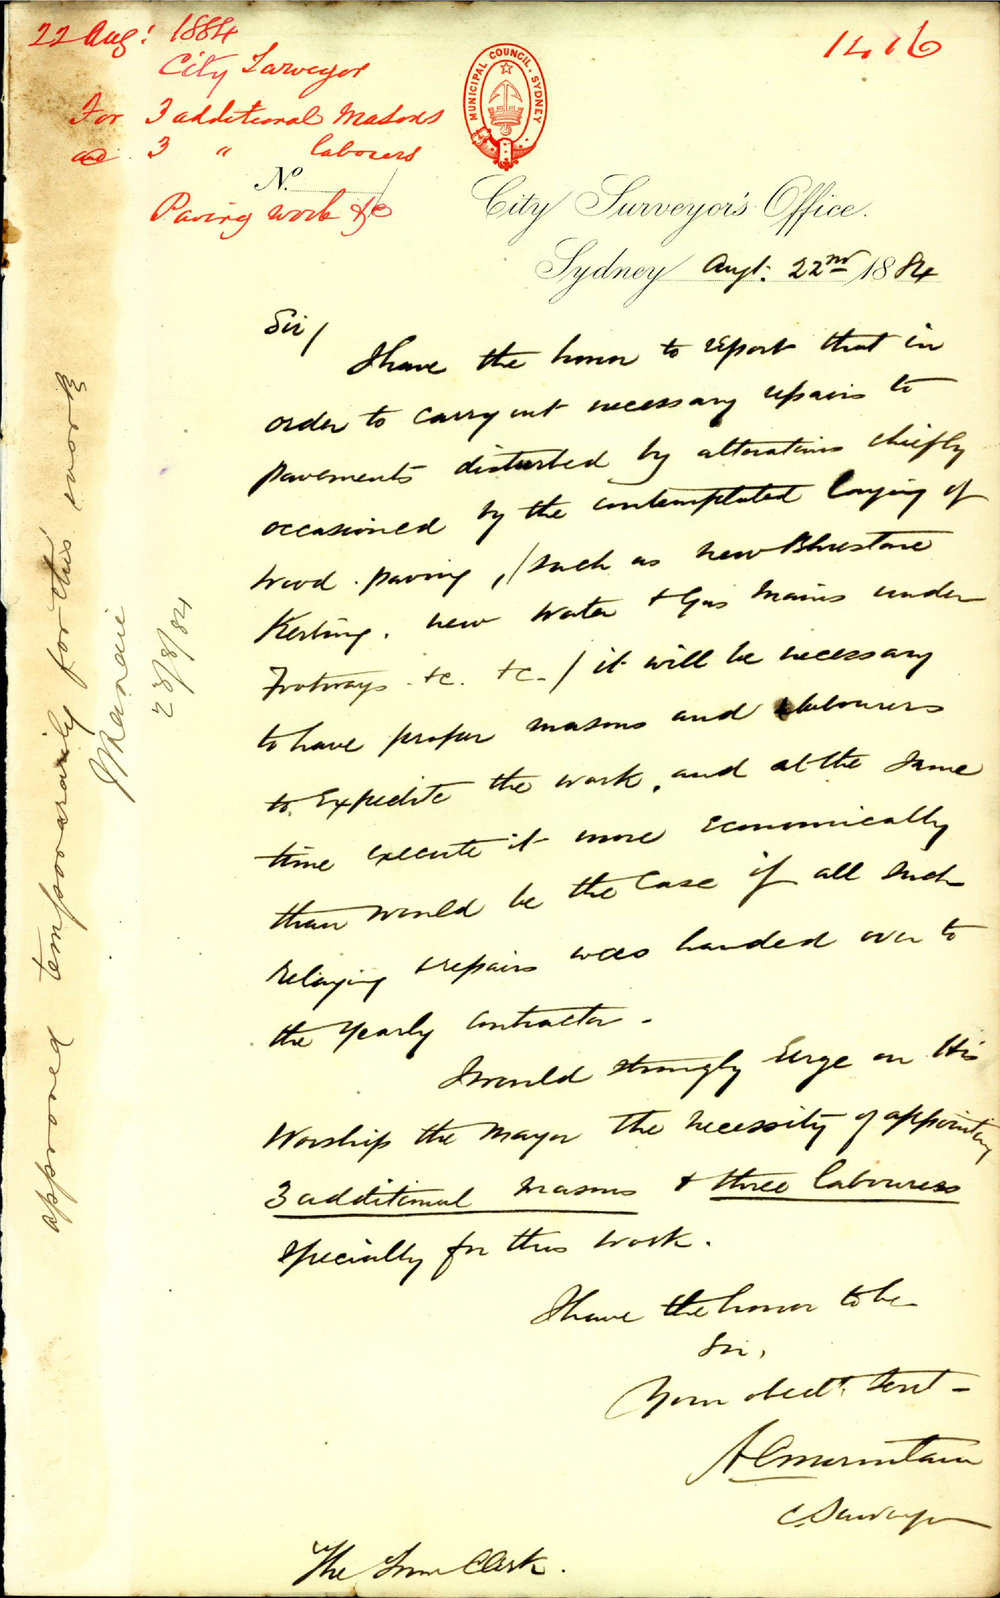 22 Aug: 1884
City Surveyor
For 3 additional Masons
and 3 " laborers
No.
Paving work &c
1416
MUNICIPAL COUNCIL. SYDNEY
City Surveyor's Office.
Sydney Augt. 22nd 1884
Sir/
I have the honor to report that in
order to carry out necessary repairs to
pavements disturbed by alterations chiefly
occasioned by the contemplated laying of
wood paving, /such as new Bluestone
Kerbing, new Water & Gas Mains under
Footways &c. &c./ it will be necessary
to have proper masons and labourers
to Expedite the work, and at the same
time execute it more Economically
than would be the Case if all such
relaying & repairs was handed over to
the Yearly Contractor.
I would strongly Urge on His
Worship the Mayor the necessity of appointing
3 additional masons & three labourers
specially for this work.
I have the honor to be
Sir,
Your obedt. Servt
AC Mountain
C. Surveyor
The Town Clerk.
approved temporarily for this work
23/8/84